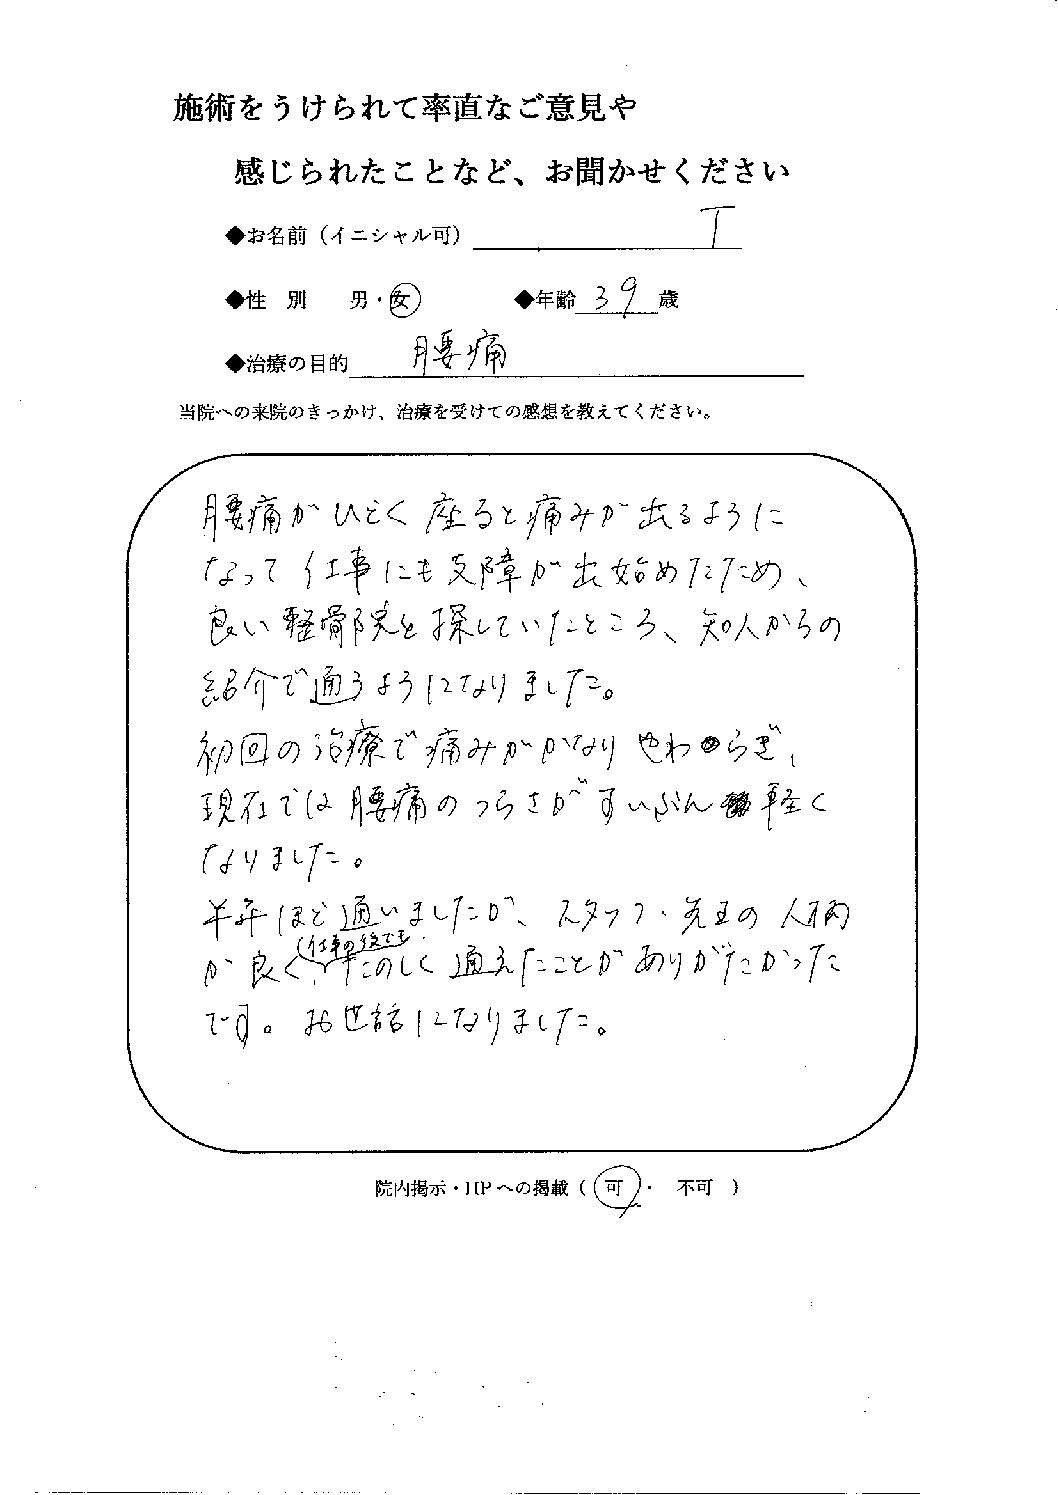 施術をうけられて率直なご意見や
感じられたことなど、お聞かせください
◆お名前（イニシャル可） T
◆性 別 男・女 ◆年齢 39 歳
◆治療の目的 腰痛
当院への来院のきっかけ、治療を受けての感想を教えてください。
腰痛がひどく座ると痛みが出るように
なって仕事にも支障が出始めたため、
良い整骨院を探していたところ、知人からの
紹介で通うようになりました。
初回の治療で痛みがかなりやわらぎ、
現在では腰痛のつらさがずいぶん軽く
なりました。
半年ほど通いましたが、スタッフ・先生の人柄
が良く、仕事の後でもたのしく通えたことがありがたかった
です。お世話になりました。
院内掲示・HPへの掲載（ 可 ・ 不可 ）